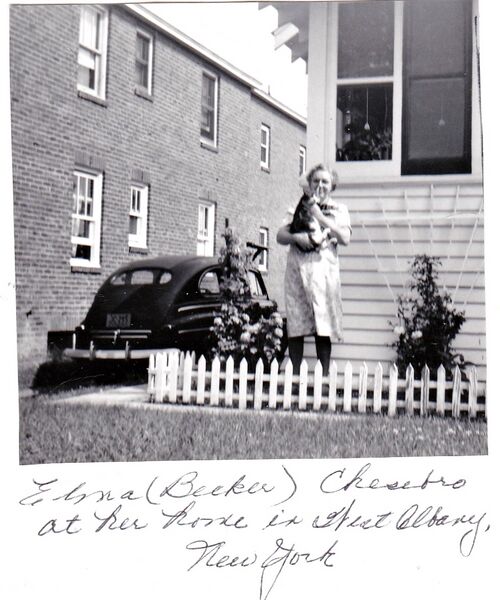 Elma (Becker) Chesebro
at her home in West Albany,
New York